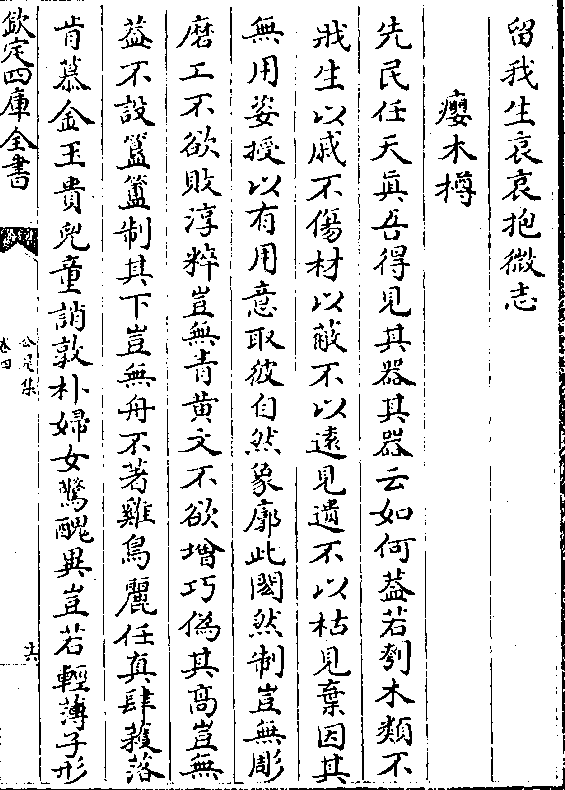 留我生哀哀抱微志
癭木樽
先民任天真吾得見其器其器云如何葢若刳木類不
戕生以戚不傷材以蔽不以遠見遺不以枯見棄因其
無用姿授以有用意取彼自然象廓此闓然制豈無彫
磨工不欲敗淳粹豈無青黄文不欲增巧偽其髙豈無
葢不設簋簠制其下豈無舟不著雞鳥麗任真肆穫落
肯慕金玉貴兒童誚敦朴婦女驚醜異豈若輕薄子形
欽定四庫全書
公是集
卷四
十六